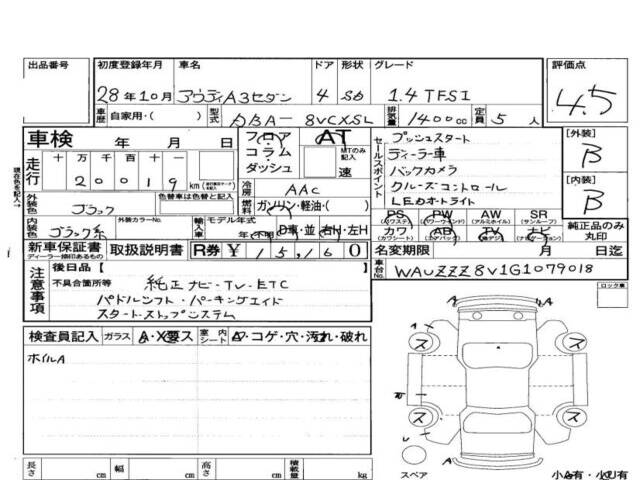 出品番号 初度登録年月 車名 ドア 形状 グレード 評価点
28年10月 アウディA3セダン 4 SD 1.4 TFSI 4.5
車歴 自家用・( ) 型式 DBA-8VCXSL 排気量 1400cc 定員 5人
車検 年 月 日 フロア AT プッシュスタート [外装]
コラム MTのみ記入 ディーラー車 B
現在色を記入→ 走行 十 万 千 百 十 一 ダッシュ 速 セールスポイント バックカメラ
20019 km 冷房 AAC クルーズコントロール [内装]
外装色 ブラック 色替車は色替と記入 燃料 ガソリン・軽油・( ) LEDオートライト B
内装色 ブラック系 外装カラーNo. 輸入車 モデル年式 PS PW AW SR 純正品のみ丸印
年(不明) D車・並 右H・左H (パワステ) (パワーウィンド) (アルミホイル) (サンルーフ)
カワ AB TV ナビ
(カワシート) (エアバック) (地デジ) (ナビゲーション)
新車保証書 取扱説明書 R券 ¥15,160 名変期限 月 日迄
ディーラー捺印あるもの
注意事項 後日品【 】 車台No. WAUZZZ8V1G1079018
不具合箇所等 純正ナビ・TV・ETC ロック車
パドルシフト・パーキングエイド
スタートストップシステム
検査員記入 ガラス A・X要ス 室内シート A・コゲ・穴・汚れ・破れ
ホイルA
A
ス ス
ス ス
U
A
スペア 小A有・小U有
長さ cm 幅 cm 高さ cm 積載量 kg